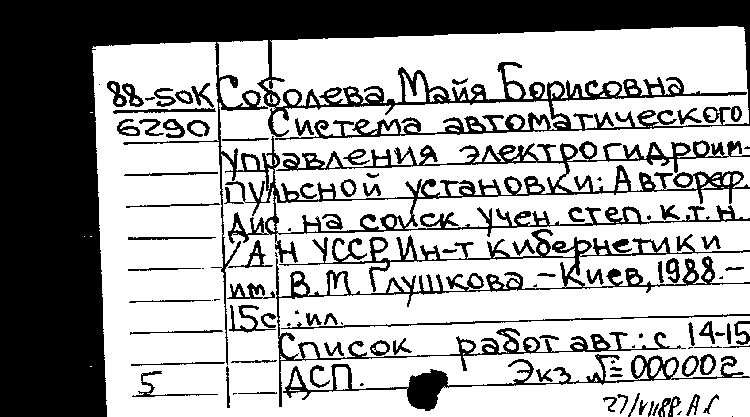 88-50К Соболева, Майя Борисовна
6290 Система автоматического
управления электрогидроим-
пульсной установки: Автореф.
дис. на соиск. учен. степ. к.т.н.
/АН УССР, Ин-т кибернетики
им. В.М. Глушкова. - Киев, 1988. -
15с.: ил.
Список работ авт.: с. 14-15
5 ДСП. Экз. № 000002
27/VII88. А.С